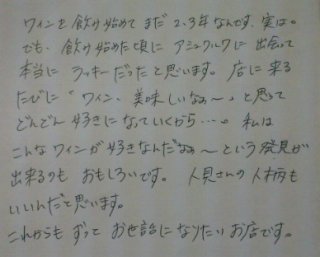 ワインを飲け始めて まだ 2、3年なんです、実は。
でも、飲け始めた頃に アジュウルワに 出会って
本当に ラッキーだったと思います。店に来る
たびに「ワイン、美味しいなぁ〜」と思って
どんどん 好きに なっていくから…。私は
こんなワインが好きなんだなぁ〜という発見が
出来るのも おもしろいです。人見さんの 人柄も
いいんだと思います。
これからも ずっと お世話になりたい お店です。